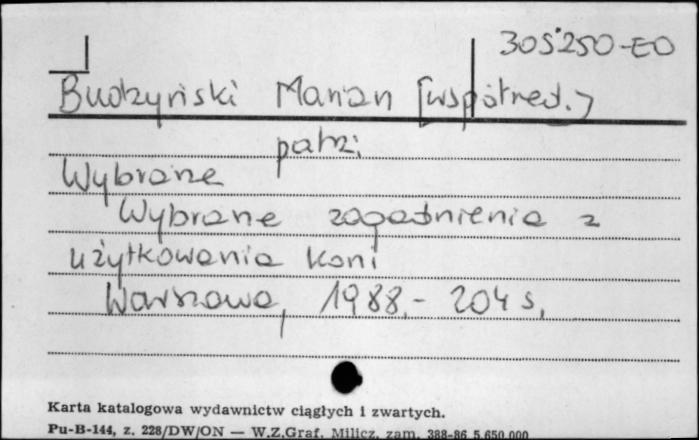 305250-EO
Budzyński Marian [współred.]
patrz:
Wybrane
Wybrane zagadnienia z
użytkowania koni
Warszawa, 1988.- 204 s.
Karta katalogowa wydawnictw ciągłych i zwartych.
Pu-B-144, z. 228/DW/ON — W.Z.Graf. Milicz, zam. 388-86 5.650.000